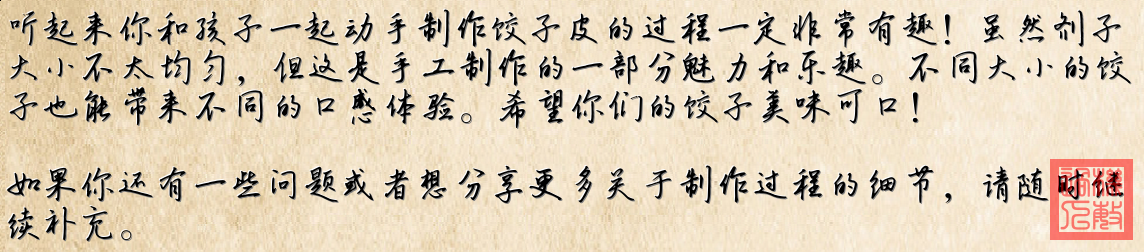 听起来你和孩子一起动手制作饺子皮的过程一定非常有趣！虽然剂子
大小不太均匀，但这是手工制作的一部分魅力和乐趣。不同大小的饺
子也能带来不同的口感体验。希望你们的饺子美味可口！
如果你还有一些问题或者想分享更多关于制作过程的细节，请随时继
续补充。